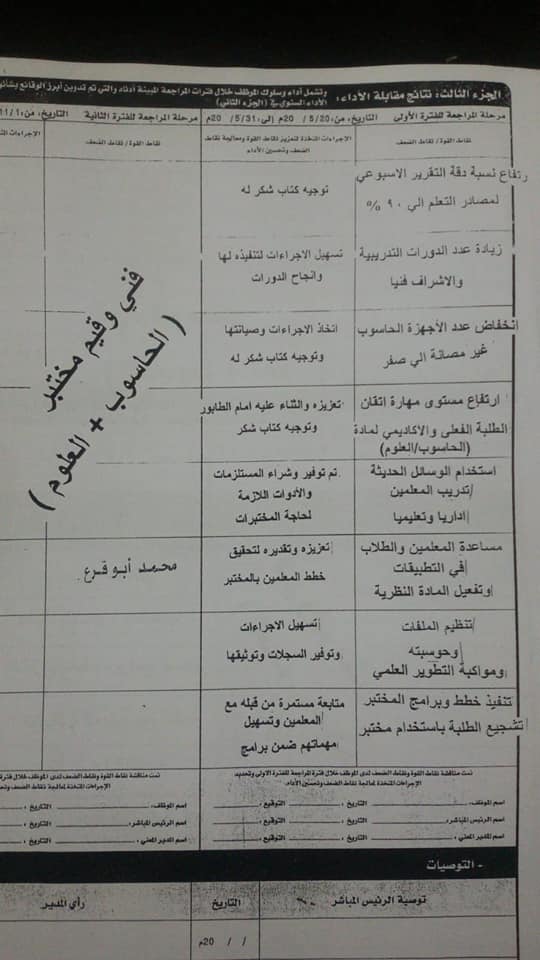 الجزء الثالث: نتائج مقابلة الأداء:
وتشمل أداء وسلوك الموظف خلال فترات المراجعة المبينة أدناه والتي تم تدوين أبرز الوقائع
الأداء السنوي في (الجزء الثاني)
مرحلة المراجعة للفترة الأولى التاريخ: من: 5/20 / 20م إلى: 5/31 / 20م
مرحلة المراجعة للفترة الثانية التاريخ: من: 11/1
نقاط القوة / نقاط الضعف
الإجراءات المتخذة لتعزيز نقاط القوة ومعالجة نقاط
الضعف وتحسين الأداء
نقاط القوة / نقاط الضعف
الإجراءات
رتفاع نسبة دقة التقرير الاسبوعي
لمصادر التعلم الي ٩٠ %
توجيه كتاب شكر له
زيادة عدد الدورات التدريبية
والاشراف فنيا
تسهيل الاجراءات لتنفيذه لها
وانجاح الدورات
انخفاض عدد الأجهزة الحاسوب
غير مصانة الي صفر
اتخاذ الاجراءات وصيانتها
وتوجيه كتاب شكر له
ارتفاع مستوى مهارة اتقان
الطلبة الفعلى والاكاديمي لمادة
(الحاسوب/العلوم)
تعزيزه والثناء عليه امام الطابور
وتوجيه كتاب شكر
استخدام الوسائل الحديثة
تدريب المعلمين
اداريا وتعليميا
تم توفير وشراء المستلزمات
والأدوات اللازمة
لحاجة المختبرات
مساعدة المعلمين والطلاب
في التطبيقات
وتفعيل المادة النظرية
تعزيزه وتقديره لتحقيق
خطط المعلمين بالمختبر
تنظيم الملفات
وحوسبته
ومواكبة التطوير العلمي
تسهيل الاجراءات
وتوفير السجلات وتوثيقها
تنفيذ خطط وبرامج المختبر
تشجيع الطلبة باستخدام مختبر
متابعة مستمرة من قبله مع
المعلمين وتسهيل
مهماتهم ضمن برامج
فني وقيم مختبر
(الحاسوب + العلوم)
محمد أبو قرع
تمت مناقشة نقاط القوة ونقاط الضعف لدى الموظف خلال فترة المراجعة للفترة الأولى وتحديد
الإجراءات المتخذة لمعالجة نقاط الضعف وتحسين الأداء.
اسم الموظف: التوقيع: التاريخ:
اسم الرئيس المباشر: التوقيع: التاريخ:
اسم المدير المعني: التوقيع: التاريخ:
تمت مناقشة نقاط القوة ونقاط الضعف لدى الموظف خلال فترة
الإجراءات المتخذة لمعالجة نقاط الضعف
اسم الموظف: التاريخ:
اسم الرئيس المباشر: التاريخ:
اسم المدير المعني: التاريخ:
- التوصيات
توصية الرئيس المباشر
التاريخ
رأي المدير
/ / 20م